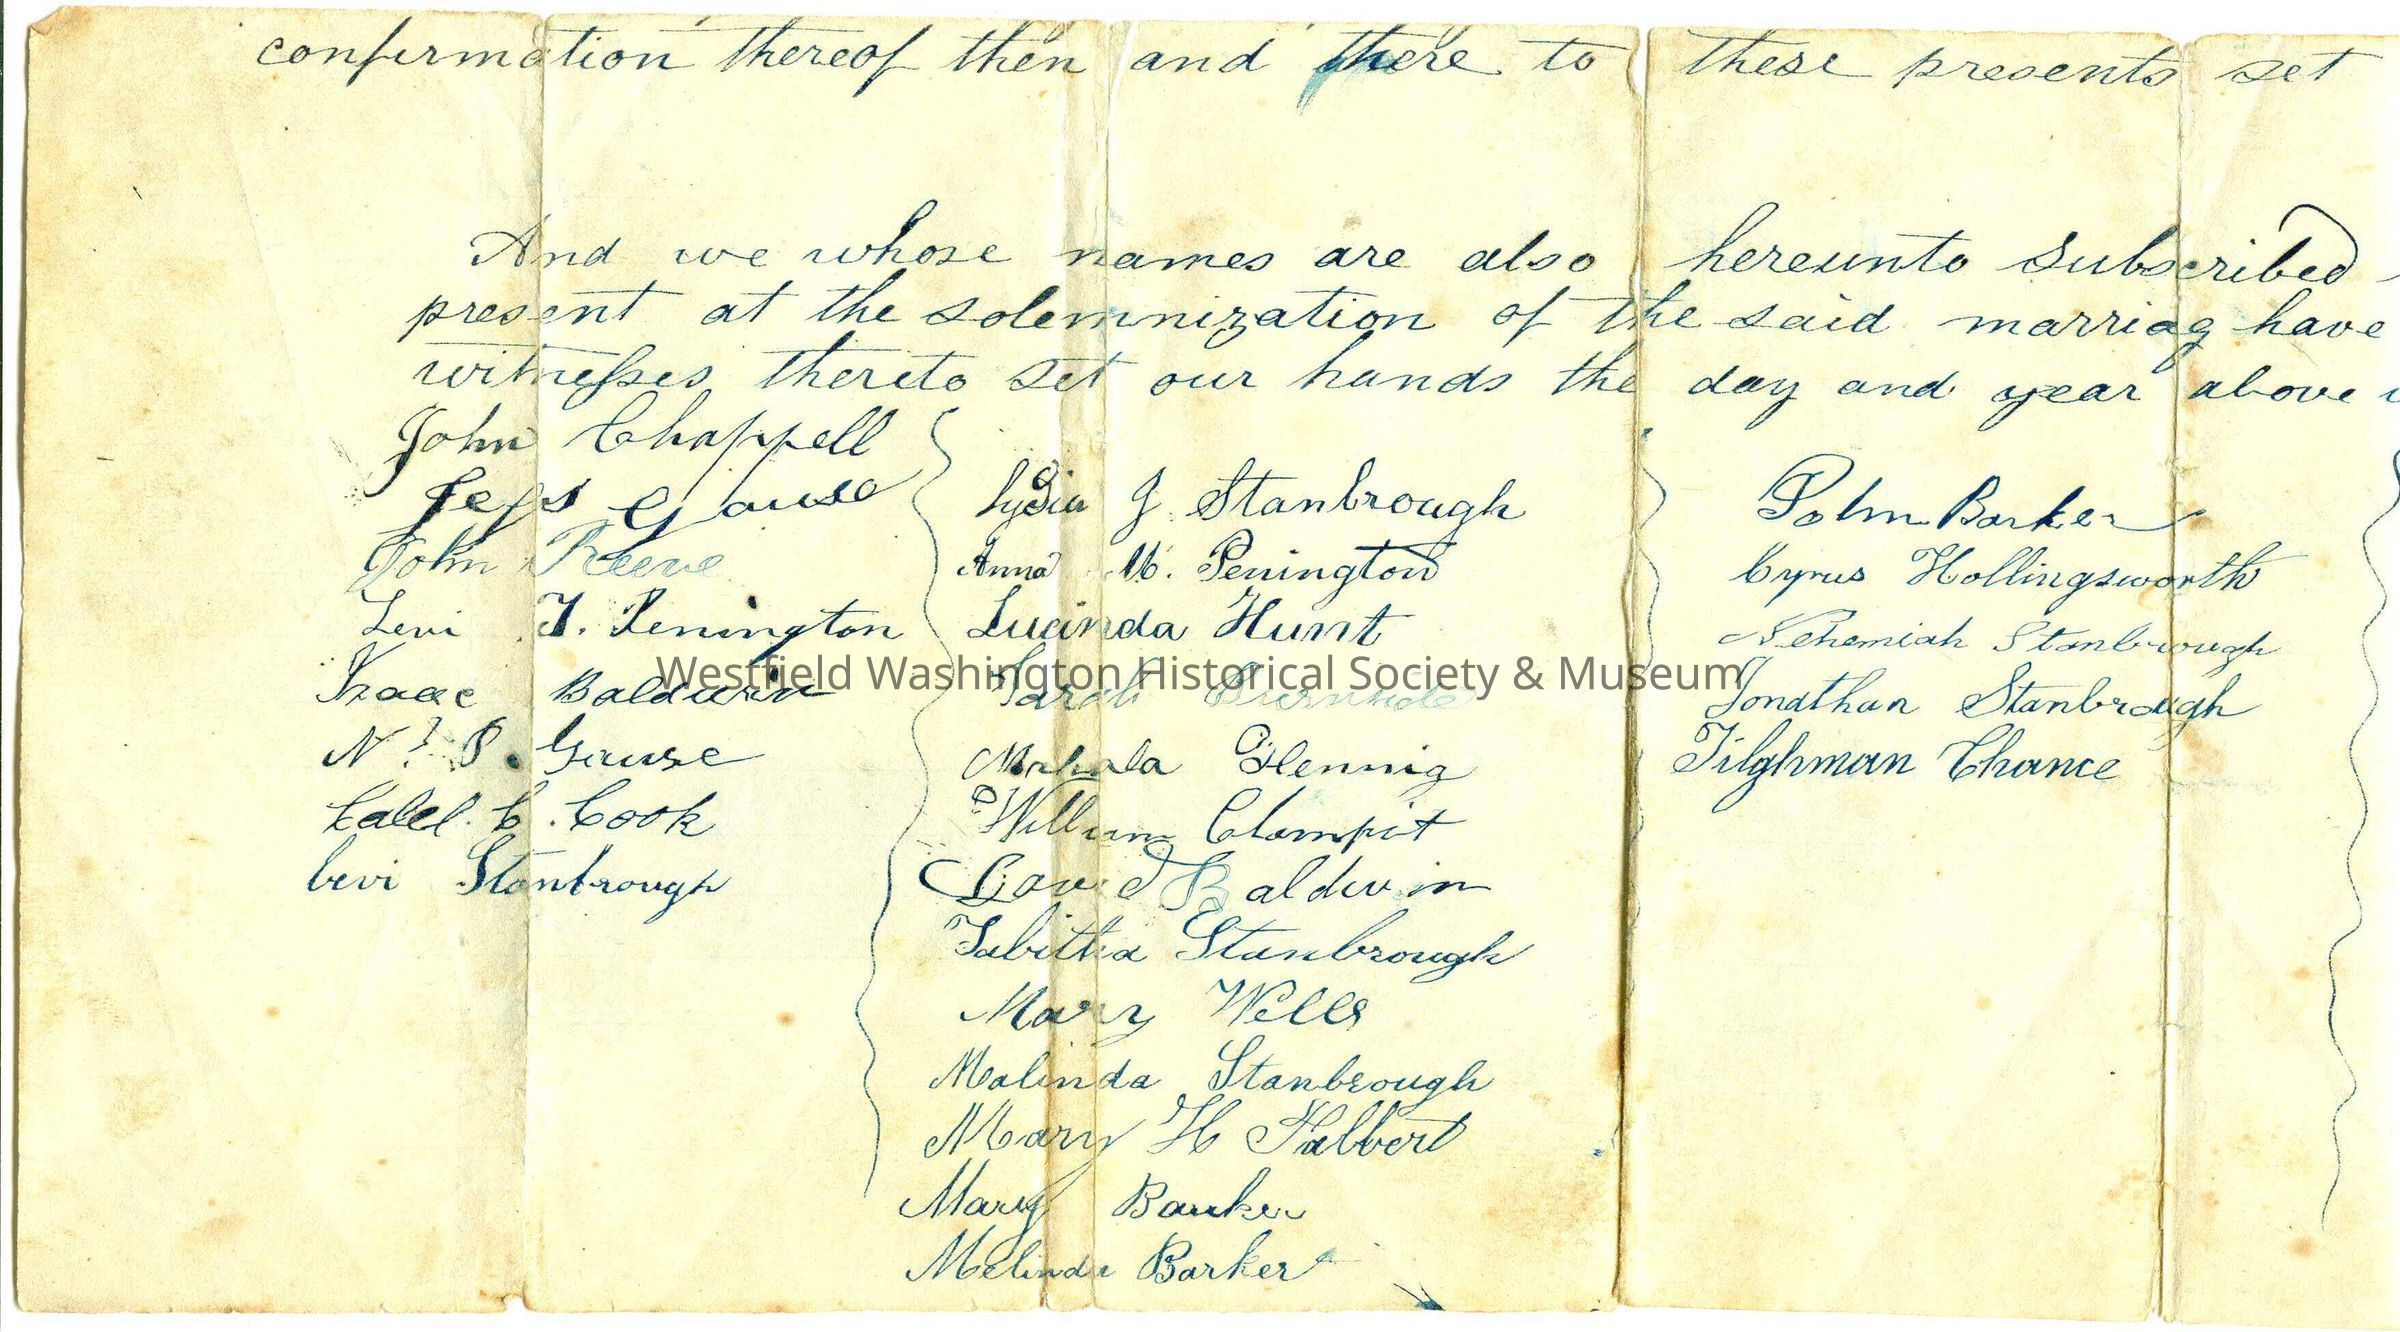 confirmation thereof then and there to these presents set
And we whose names are also hereunto subscribed
present at the solemnization of the said marriag have
witnesses thereto set our hands the day and year above
John Chappell
Jess Gause
John Reeve
Levi T. Penington
Isaac Baldwin
N P. Gause
Calel. C. Cook
Levi Stanbrough
Lydia J Stanbrough
Anna M. Penington
Lucinda Hunt
Sarah
Mahala
William Clampit
David Baldwin
Tabitha Stanbrough
Mary Wells
Malinda Stanbrough
Mary H Talbert
Mary Barker
Melinda Barker
John Barker
Cyrus Hollingsworth
Nehemiah Stanbrough
Jonathan Stanbrough
Tilghman Chance
Westfield Washington Historical Society & Museum